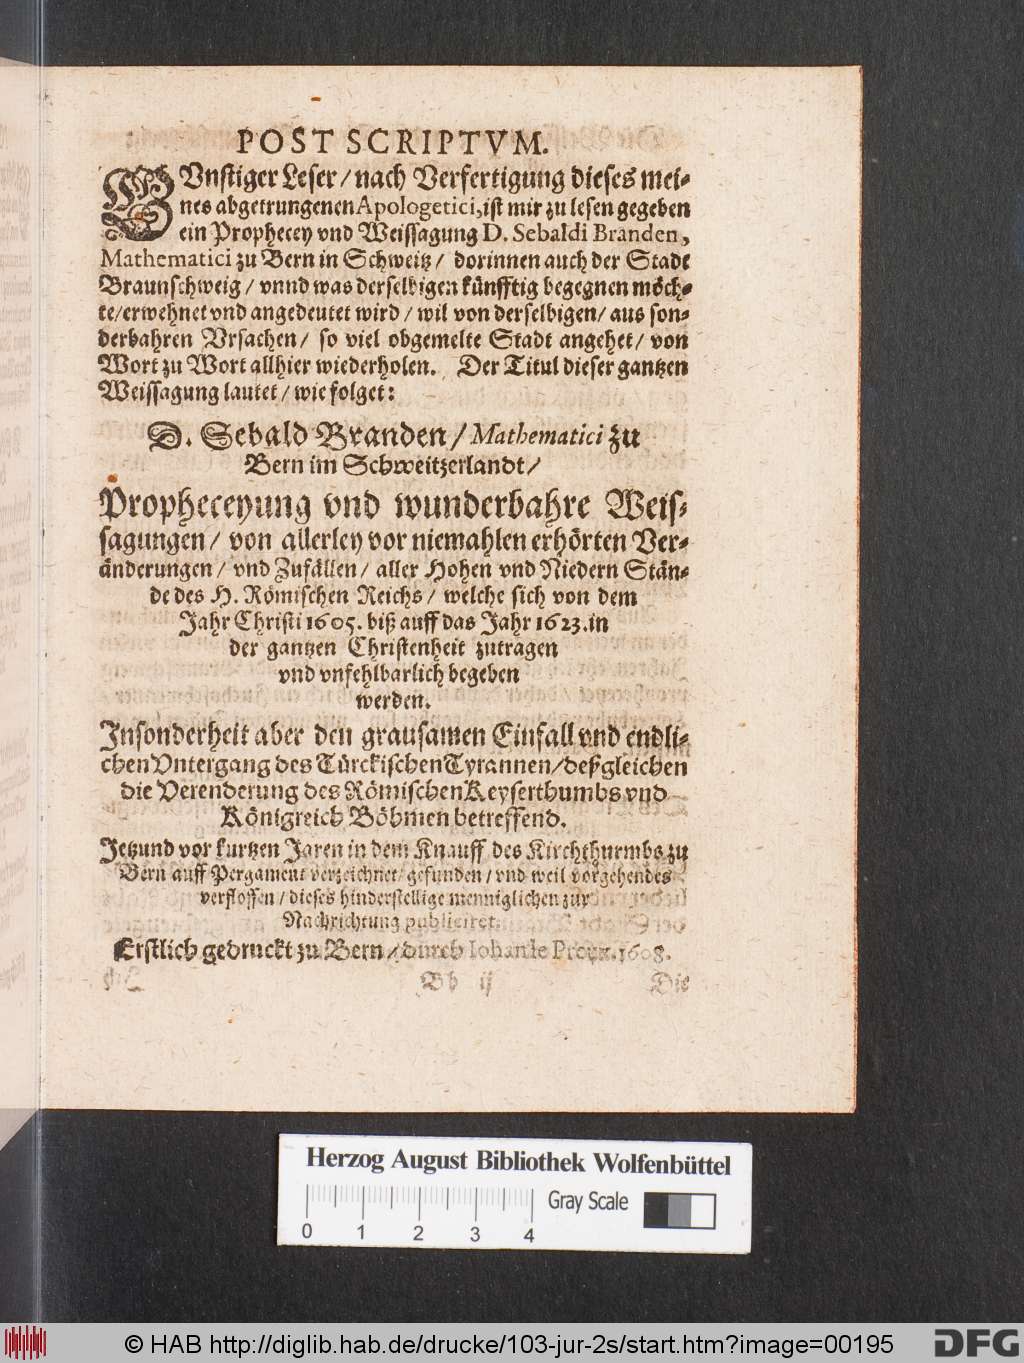 POST SCRIPTVM.
GVnstiger Leser / nach Verfertigung dieses mei-
nes abgetrungenen Apologetici, ist mir zu lesen gegeben
ein Prophecey vnd Weissagung D. Sebaldi Branden,
Mathematici zu Bern in Schweitz / dorinnen auch der Stadt
Braunschweig / vnnd was derselbigen künfftig begegnen möch-
te / erwehnet vnd angedeutet wird / wil von derselbigen / aus son-
derbahren Vrsachen / so viel obgemelte Stadt angehet / von
Wort zu Wort allhier wiederholen. Der Titul dieser gantzen
Weissagung lautet / wie folget:
D. Sebald Branden / Mathematici zu
Bern im Schweitzerlandt /
Propheceyung vnd wunderbahre Weis-
sagungen / von allerley vor niemahlen erhörten Ver-
änderungen / vnd Zufällen / aller Hohen vnd Niedern Stän-
de des H. Römischen Reichs / welche sich von dem
Jahr Christi 1605. biß auff das Jahr 1623. in
der gantzen Christenheit zutragen
vnd vnfehlbarlich begeben
werden.
Insonderheit aber den grausamen Einfall vnd endli-
chen Vntergang des Türckischen Tyrannen / deßgleichen
die Verenderung des Römischen Keyserthumbs vnd
Königreich Böhmen betreffend.
Jetzund vor kurtzen Jaren in dem Knauff des Kirchthurmbs zu
Bern auff Pergament verzeichnet / gefunden / vnd weil vorgehendes
verflossen / dieses hinderstellige menniglichen zur
Nachrichtung publiciret.
Erstlich gedruckt zu Bern / durch Iohan le Preux. 1608.
Bb ij Die
Herzog August Bibliothek Wolfenbüttel
Gray Scale
0 1 2 3 4
© HAB http://diglib.hab.de/drucke/103-jur-2s/start.htm?image=00195
DFG